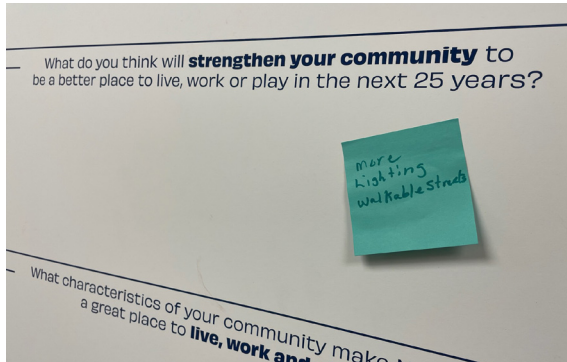 What do you think will strengthen your community to
be a better place to live, work or play in the next 25 years?
more
Lighting
walkable streets
What characteristics of your community make
a great place to live, work and